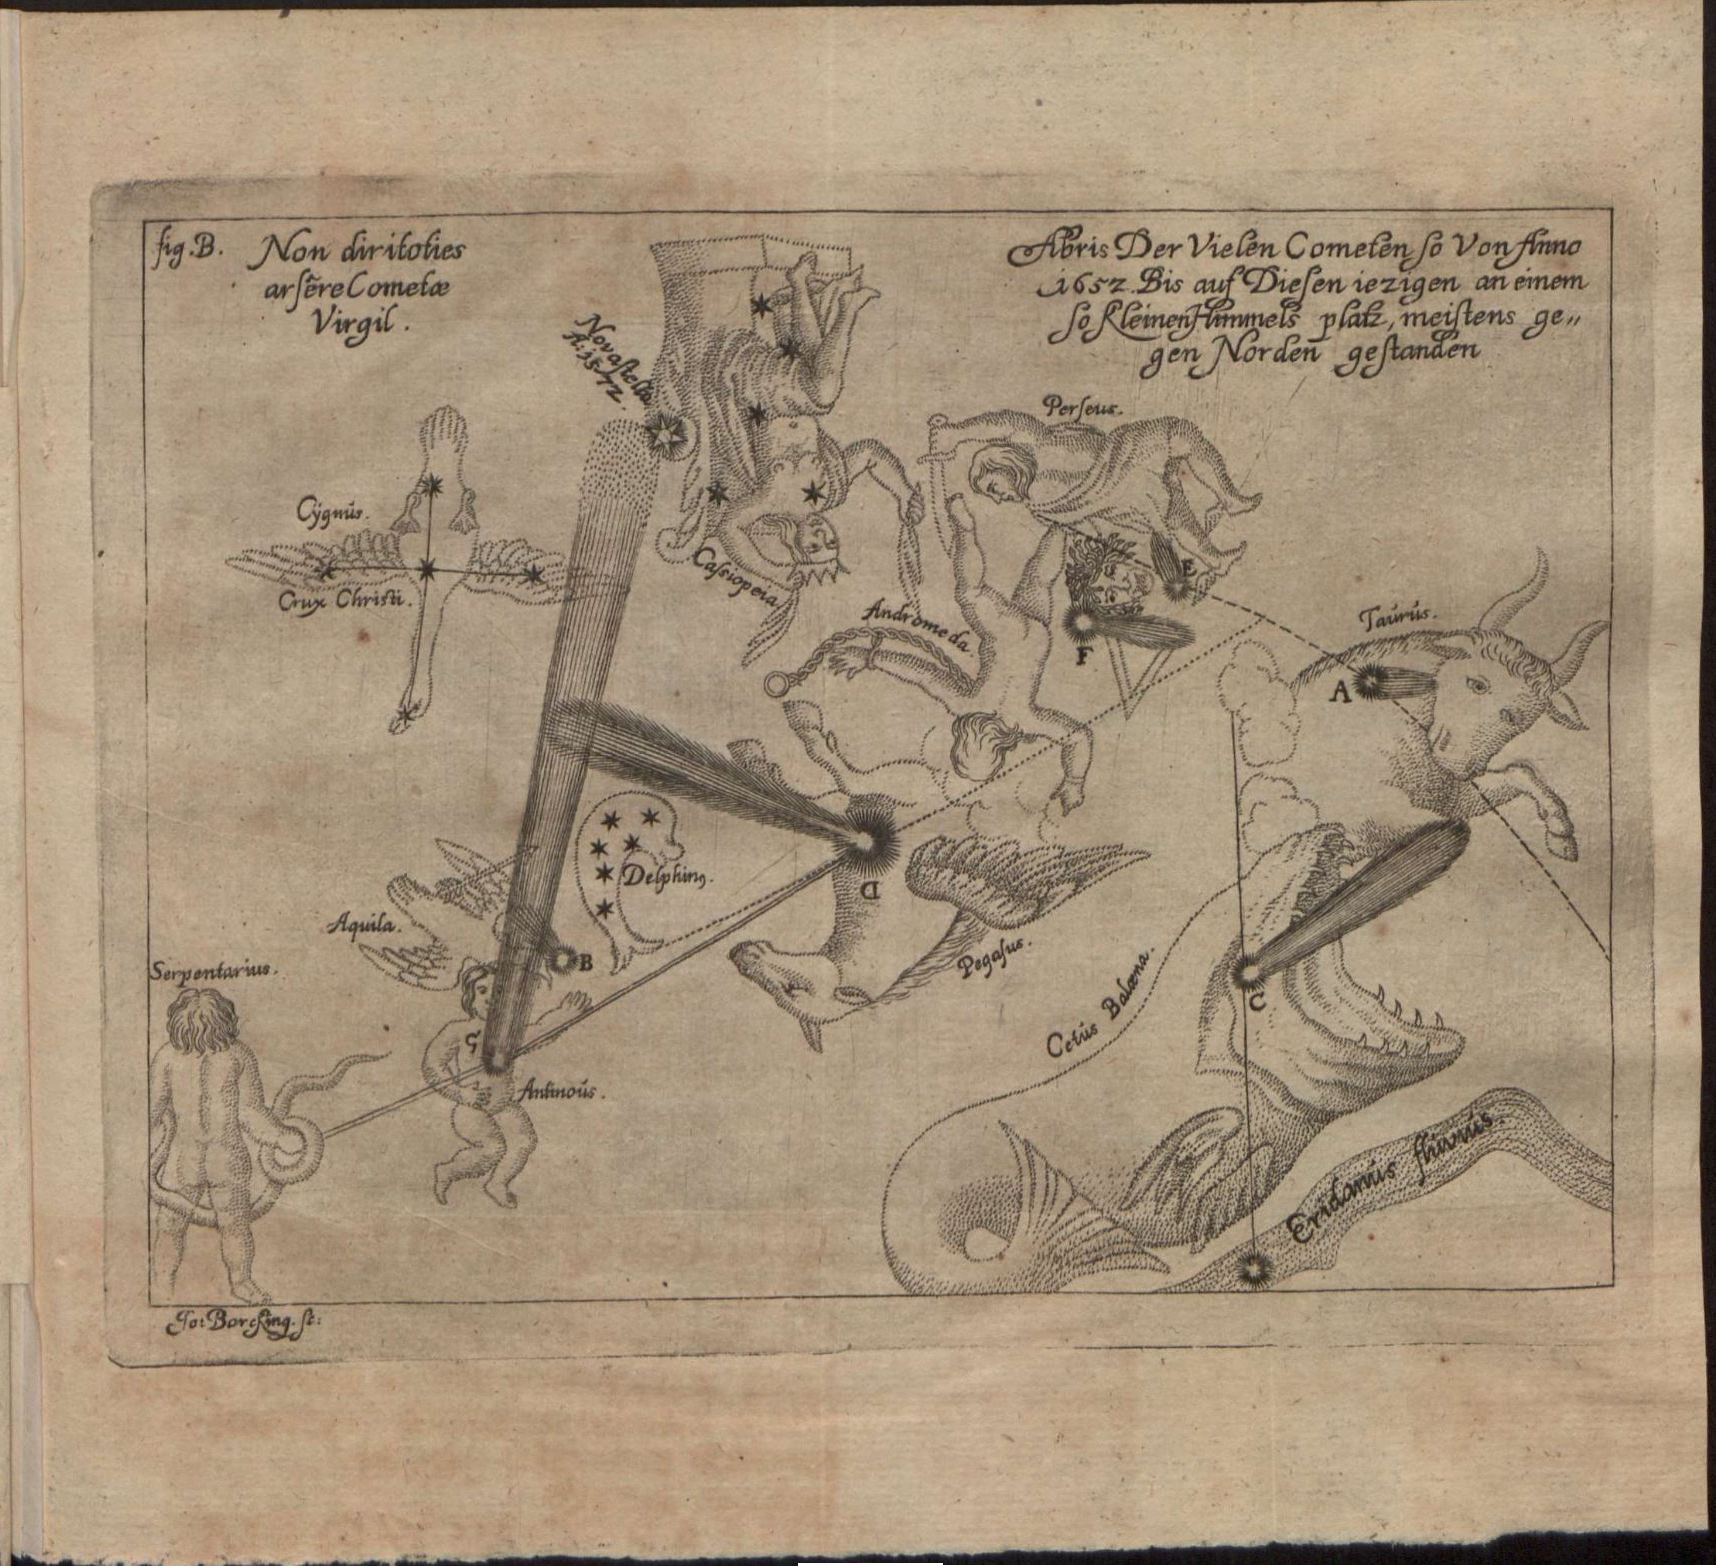 fig. B.
Non diri toties
arsēre Cometæ
Virgil.
Abris Der Vielen Cometen so Von Anno
1652. Bis auf Diesen iezigen an einem
so Kleinen Himmels platz, meistens ge„
gen Norden gestanden
Nova stella
A: 1572.
Perseus.
Cÿgnus.
Crux Christi.
Cassiopeia
E
Andromeda.
F
Taurus.
A
Delphing.
D
Aquila.
B
Pegasus.
Serpentarius.
Cetus Balæna.
C
Antinous.
Eridanus fluvius.
C
Jo: Borcking. sc: